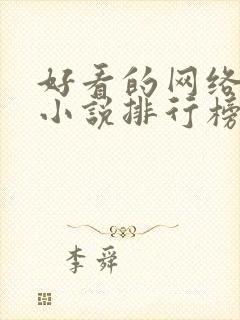 好看的网络
小说排行榜
李舜